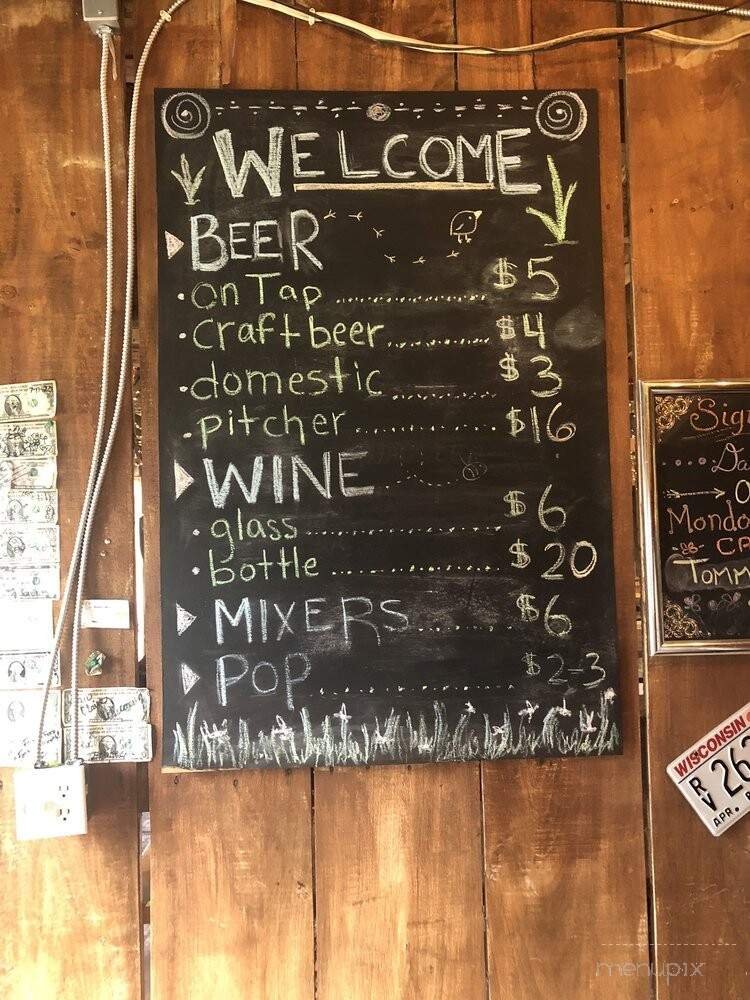 WELCOME
BEER
• on Tap ............ $5
• craft beer ............ $4
• domestic ............ $3
• pitcher ............ $16
WINE
• glass ............ $6
• bottle ............ $20
MIXERS ............ $6
POP ............ $2-3
Sig
Da
Monda
TOMM
WISCONSIN
RV 26
APR.
menupix